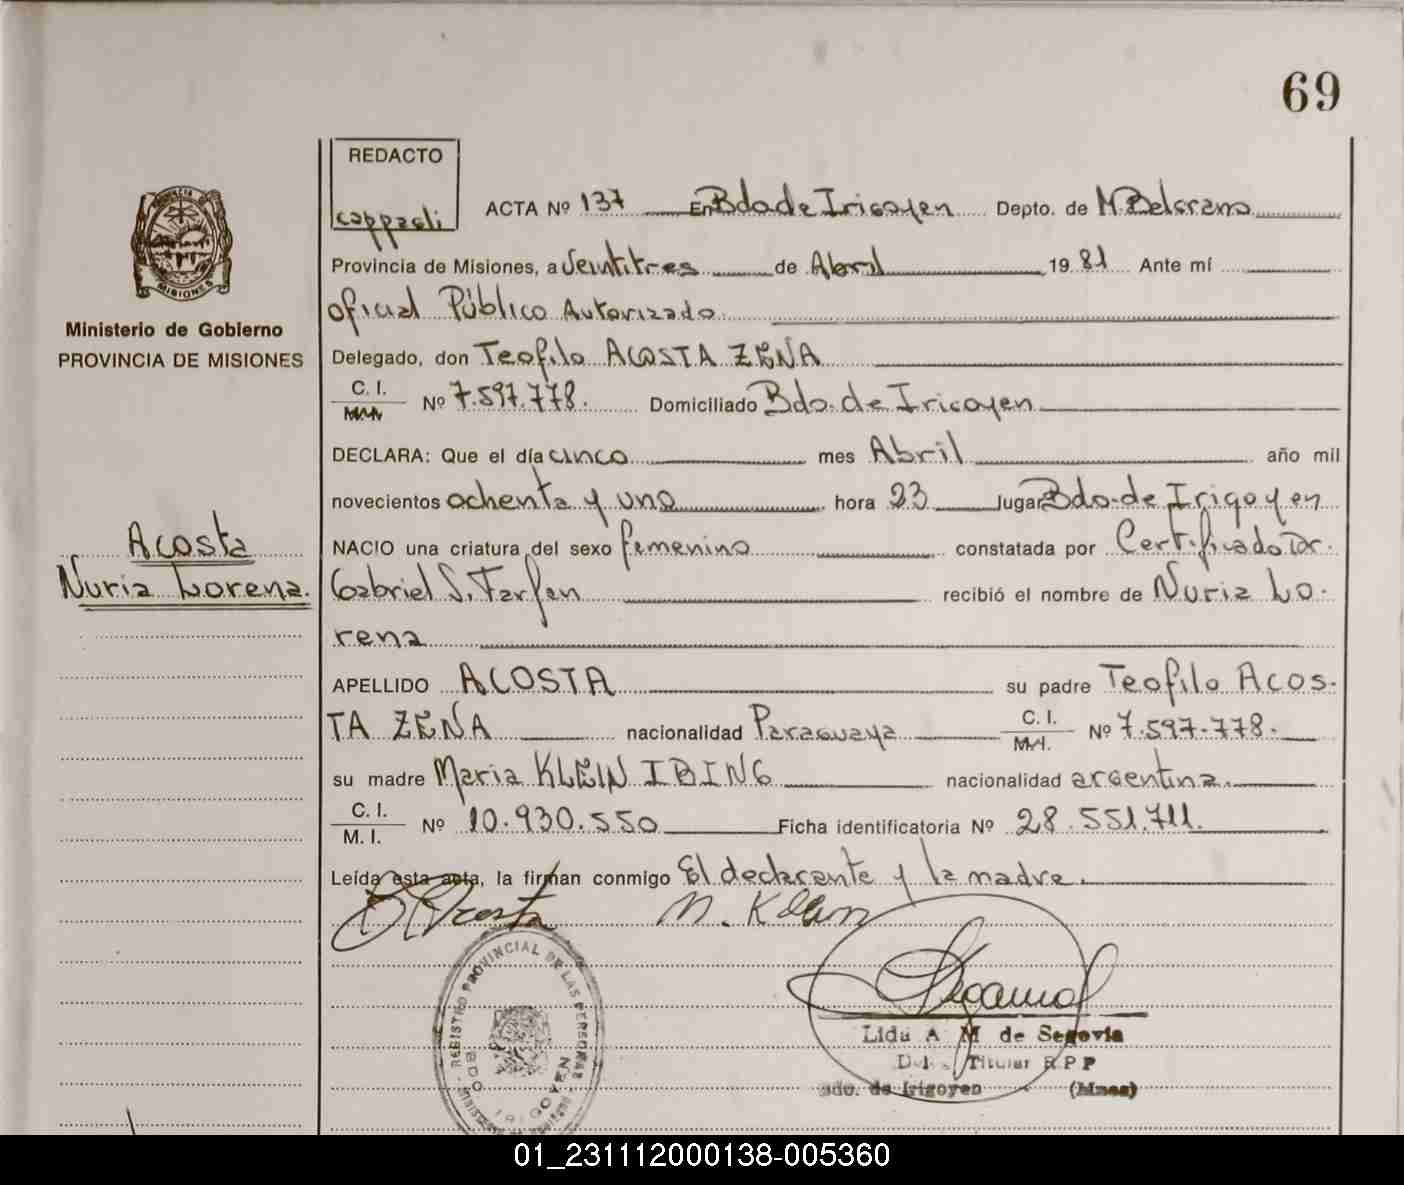 69
REDACTO
cappaeli
ACTA Nº 137 En Bdo de Irigoyen Depto. de M. Belgrano
Provincia de Misiones, a veintitres de Abril 1981 Ante mí
oficial Público Autorizado
Delegado, don Teofilo ACOSTA ZENA
C. I. Nº 7.597.778. Domiciliado Bdo. de Irigoyen
DECLARA: Que el día cinco mes Abril año mil
novecientos ochenta y uno hora 23 lugar Bdo. de Irigoyen
NACIO una criatura del sexo femenino constatada por Certificado Dr.
Gabriel S. Farfen recibió el nombre de Nuria Lo-
rena
APELLIDO ACOSTA su padre Teofilo Acos-
TA ZENA nacionalidad Paraguaya C. I. M.I. Nº 7.597.778.
su madre Maria KLEIN IBING nacionalidad argentina.
C. I. M. I. Nº 10.930.550 Ficha identificatoria Nº 28.551.711.
Leída esta acta, la firman conmigo El declarante y la madre.
Acosta M. Klein
PROVINCIA DE MISIONES
Ministerio de Gobierno
PROVINCIA DE MISIONES
Acosta
Nuria Lorena.
REGISTRO PROVINCIAL DE LAS PERSONAS
BDO IRIGOYEN
Lida A M de Segovia
Titular R P P
Bdo. de Irigoyen (Mnes)
01_231112000138-005360